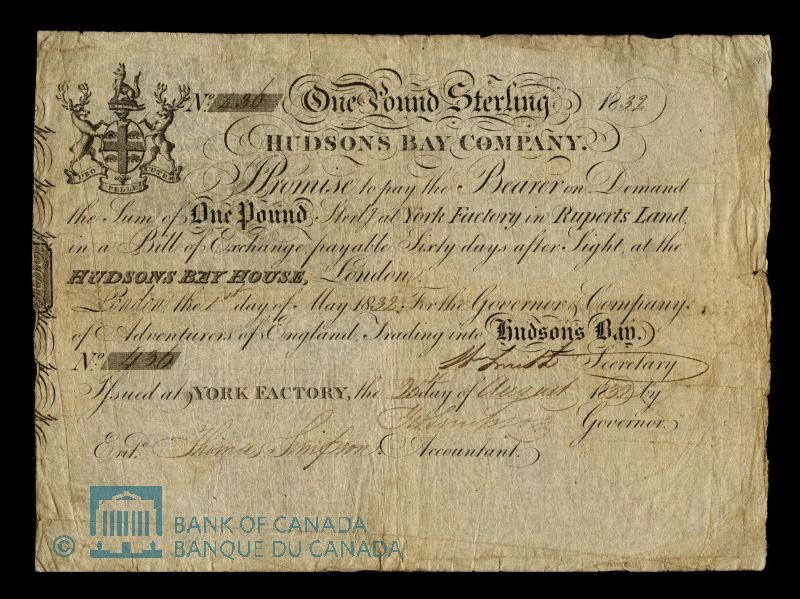 No. 436 One Pound Sterling 1832
HUDSONS BAY COMPANY.
PRO PELLE CUTEM
I Promise to pay the Bearer on Demand
the Sum of One Pound Sterlg. at York Factory in Ruperts Land
in a Bill of Exchange payable Sixty days after Sight, at the
HUDSONS BAY HOUSE, London.
London, the 1st day of May 1832; For the Governor & Company
of Adventurers of England Trading into Hudson's Bay.
No. 436
W Smith Secretary
Issued at YORK FACTORY, the day of August 1832 by
Governor.
Entd. Thomas Simpson Accountant.
© BANK OF CANADA
BANQUE DU CANADA